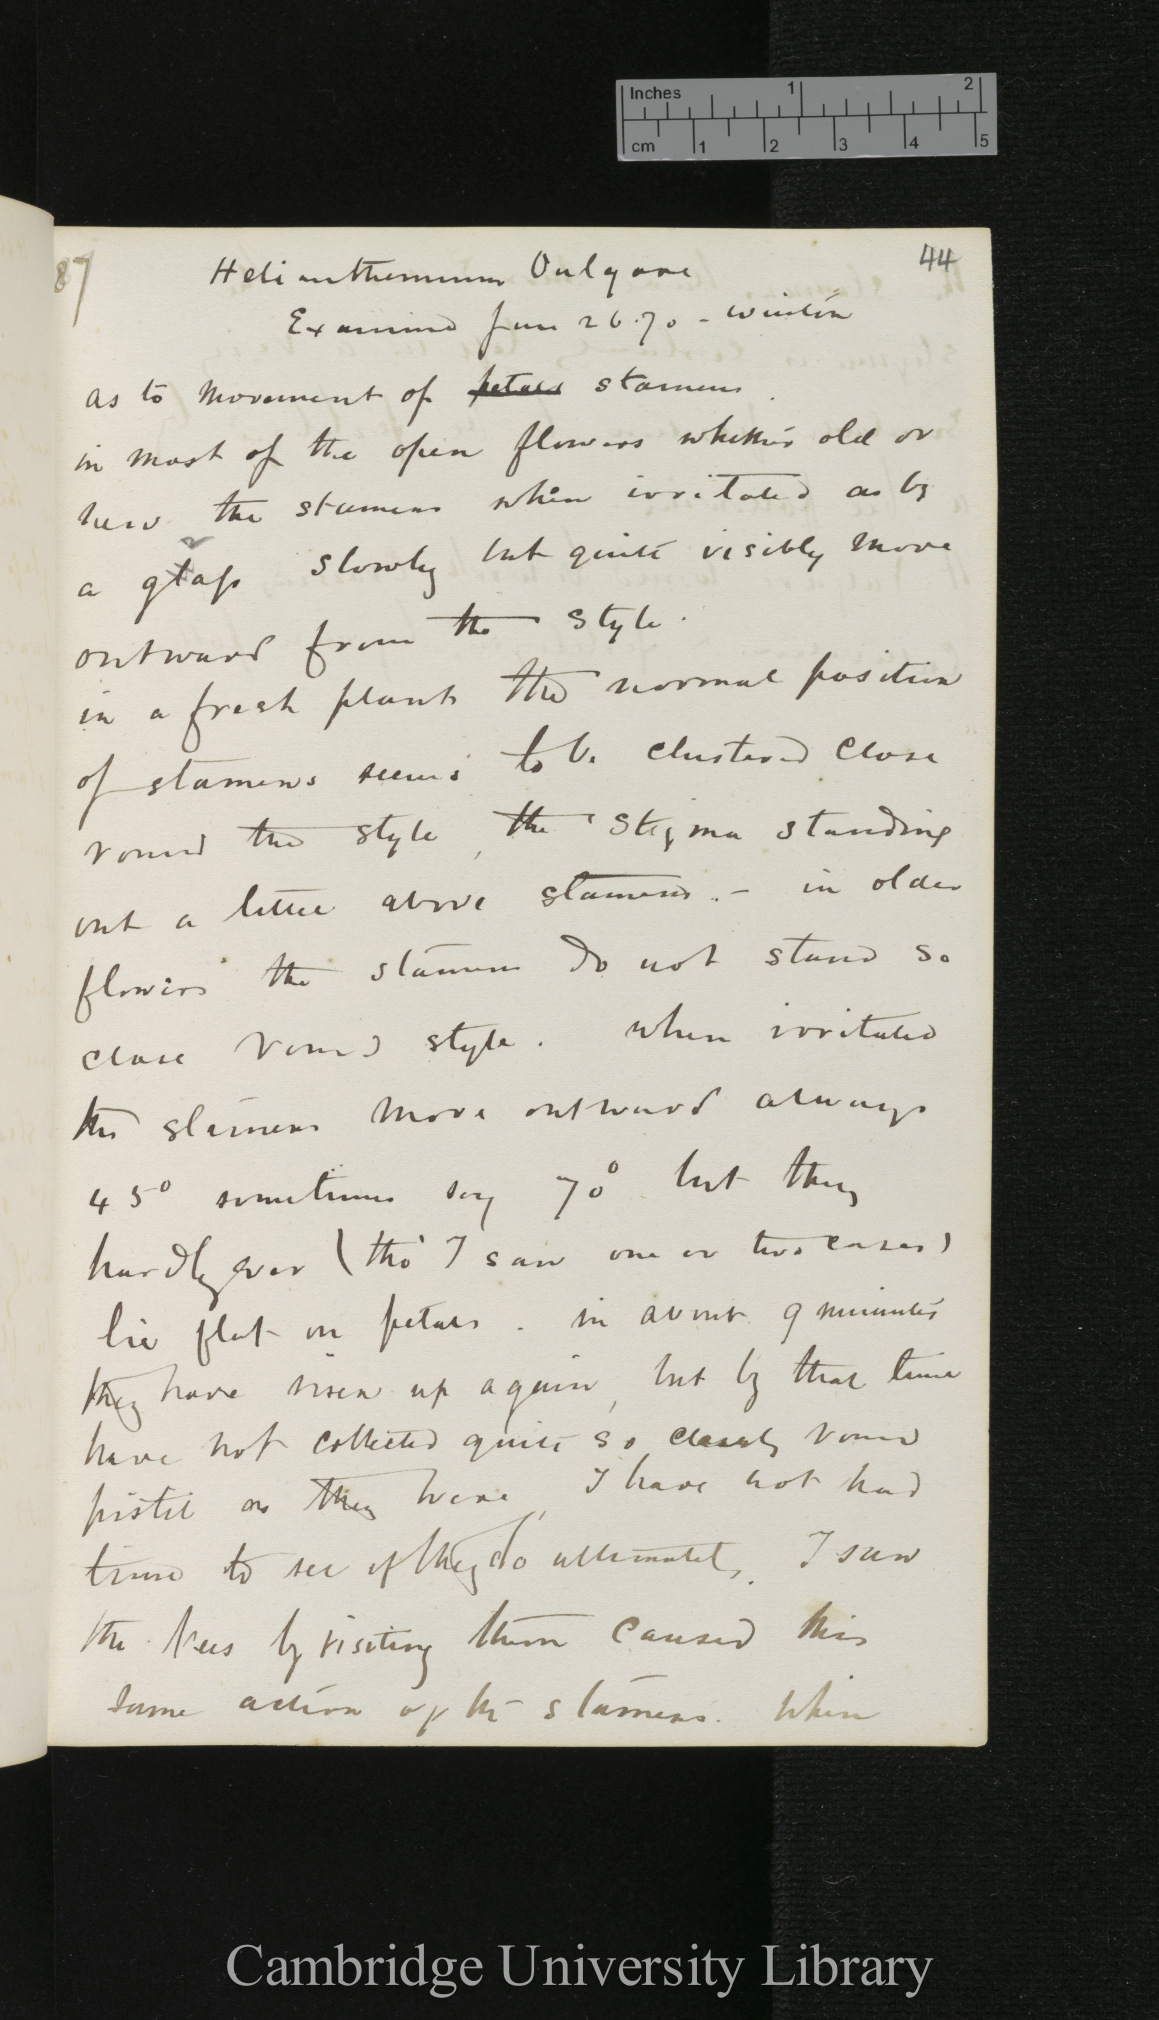 Inches 1 2
cm 1 2 3 4 5
87
44
Helianthemum Vulgare
Examined June 26. 70 - Winton
as to movement of petals stamens.
in most of the open flowers whether old or
new the stamens when irritated as by
a grasp slowly but quite visibly move
outward from the style.
in a fresh plant the normal position
of stamens seems to be clustered close
round the style, the stigma standing
out a little above stamens. - in older
flowers the stamens do not stand so
close round style. when irritated
the stamens move outward always
45° sometimes say 70° but they
hardly ever (tho' I saw one or two cases)
lie flat on petals. in about 9 minutes
they have risen up again, but by that time
have not collected quite so closely round
pistil as they were, I have not had
time to see if they do ultimately. I saw
the bees by visiting them caused this
same action of the stamens. When
Cambridge University Library